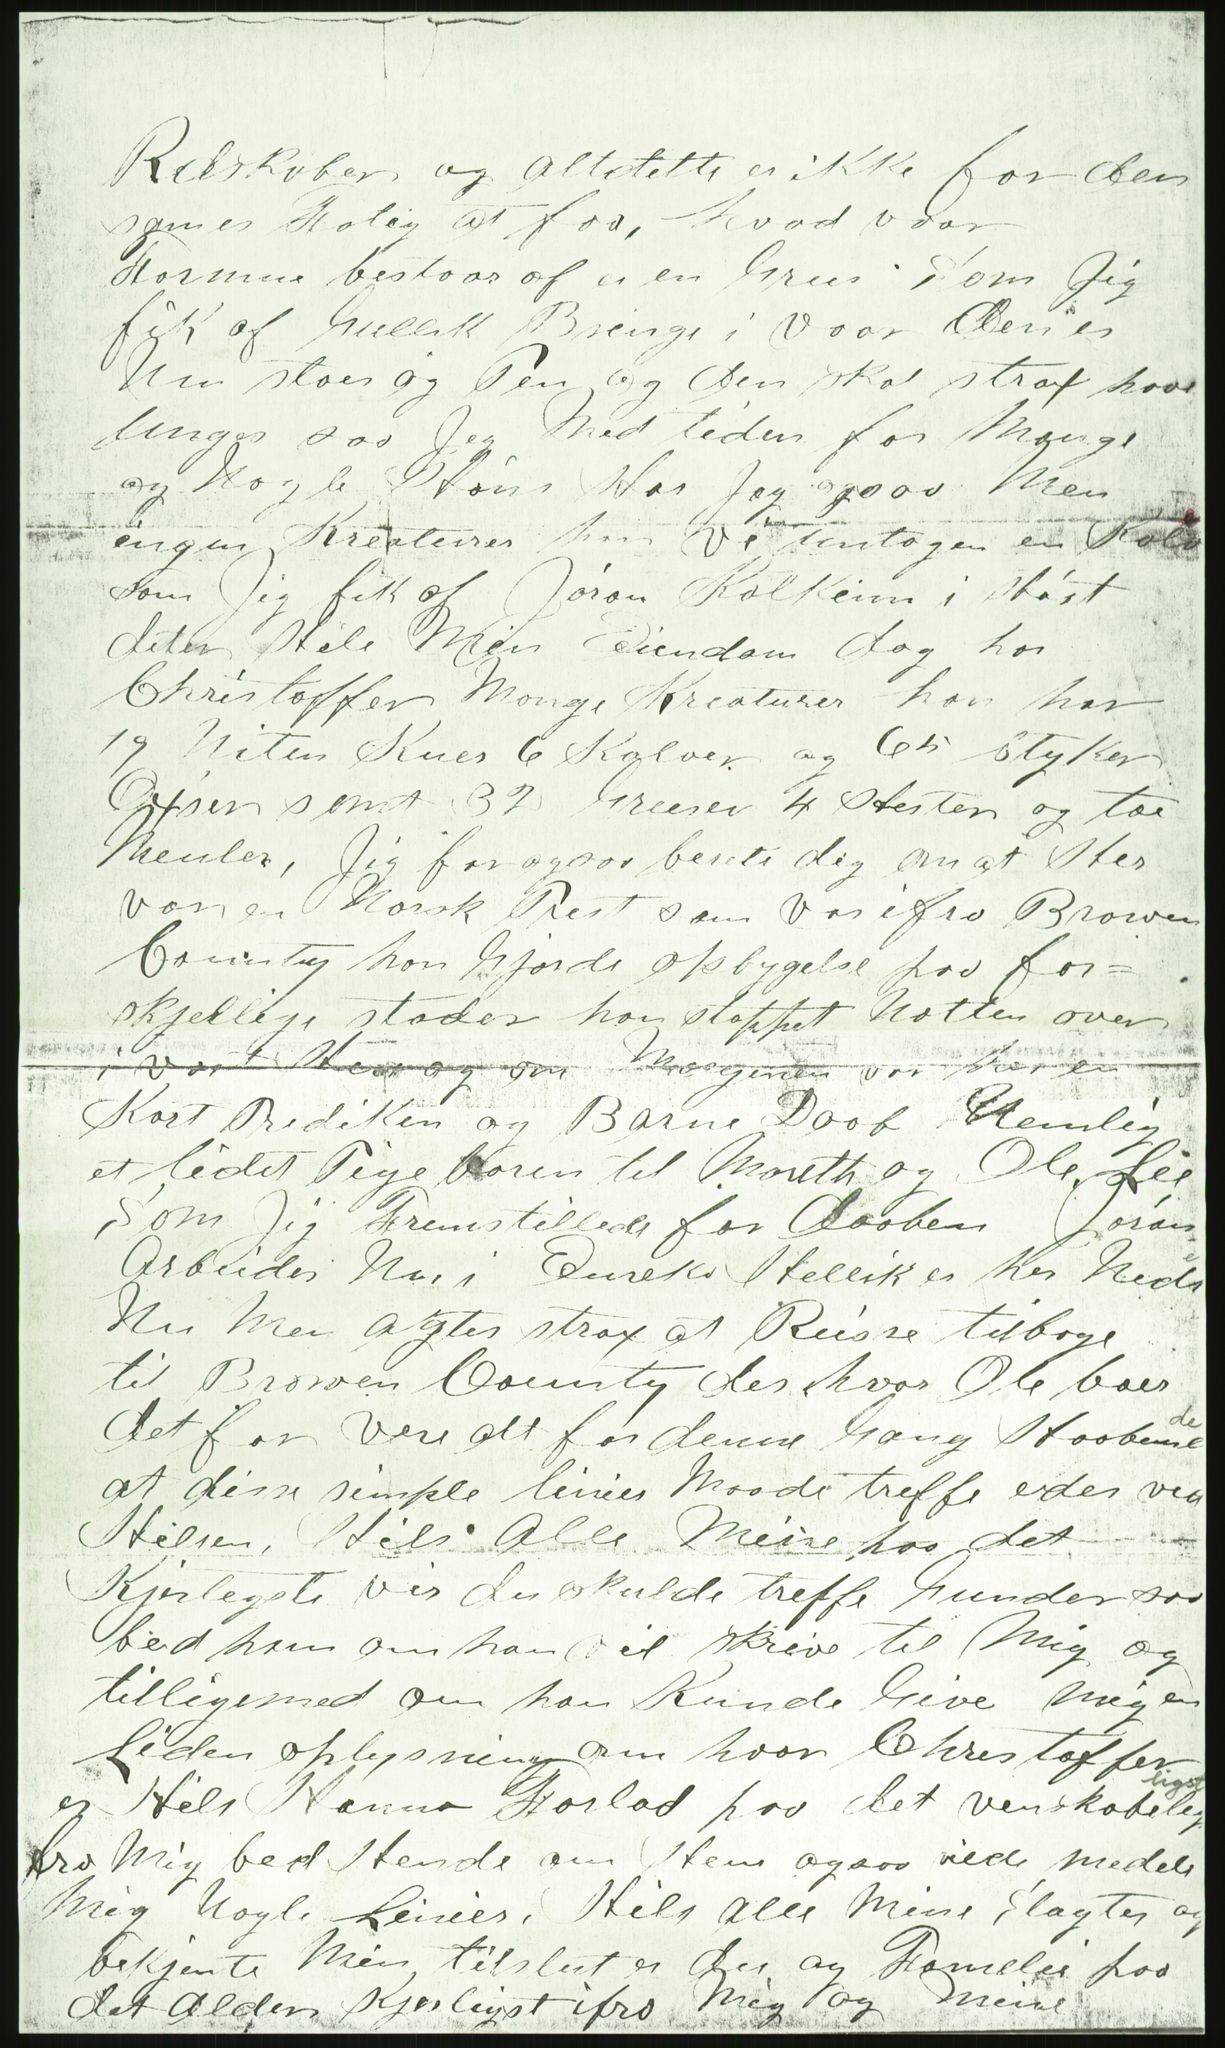 Redskober og alt dette er ikke for den
somer Folig at faa, hvad vaar
Formue bestaar af er en Gris som Jig
fik af Gullik Bringe i Vaar den er
Nu staer og Pen og den skal strax have
unger saa Jeg Med tiden faar Mange
og Nogle Høns Har Jeg ogsaa Men
ingen Kreaturer har Vi untagen en Kalv
som Jig fik af Jøran Kolkinn i Høst
deter Hele Min Eiendom dog har
Christoffer Mange Kreaturer han har
19 Niten Kuer 6 Kalver og 65 styker
Oxser samt 32 Griser 4 Hester og toe
Meuler, Jig faar ogsaa berete dig om at Her
var en Norsk Prest som Var ifra Browen
County han Gjorde opbygelse paa for=
skjellige stader han stoppet Natten over
i vart Hus og om Morgenen var her en
Kort Prediken og Barne Daab Nemlig
et lidet Pige baren til Mareth og Ole Lie
som Jig Fremstillede for daaben Jøran
Arbeider Nu i Eureka Hellik er her Nede
Nu Men agter strax at Reisse tilbage
til Browen County der hvor Ole boer
det faar Vere alt for denne Gang Haabende
at disse simple linier Maade treffe eder vel
Hilsen, Hils Alle Meine paa det
Kjerlegste vis du skulde treffe Gunder saa
bed ham om han vil skrive til Mig og
tilligemed om han Kunde Give Mig en
Liden oplysning om hvor Christoffer
er Hils Hanna Forlad paa det venskabeligst
fra Mig bed Hende om Hun ogsaa vilde medele
Mig Nogle Linier, Hils alle Mine slagter og
bekjente Men tilslut er du og Familie paa
det alder Kjerligst ifra Mig og Meine